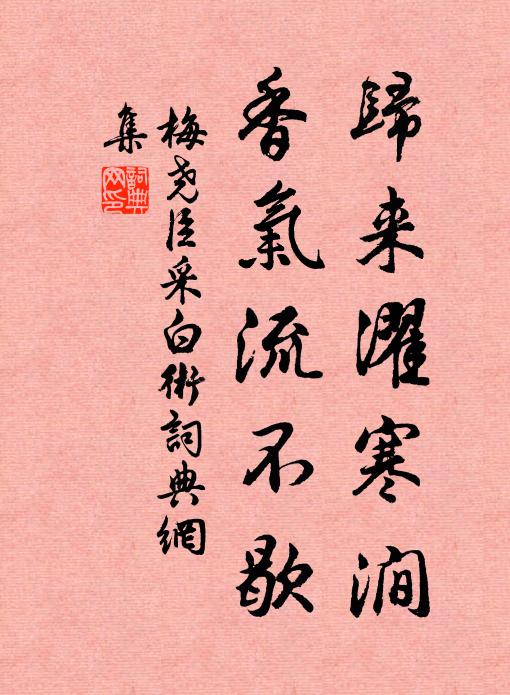 歸来濯寒澗
香氣流不歇
梅尭臣采白術詞典網
集
詞典网印